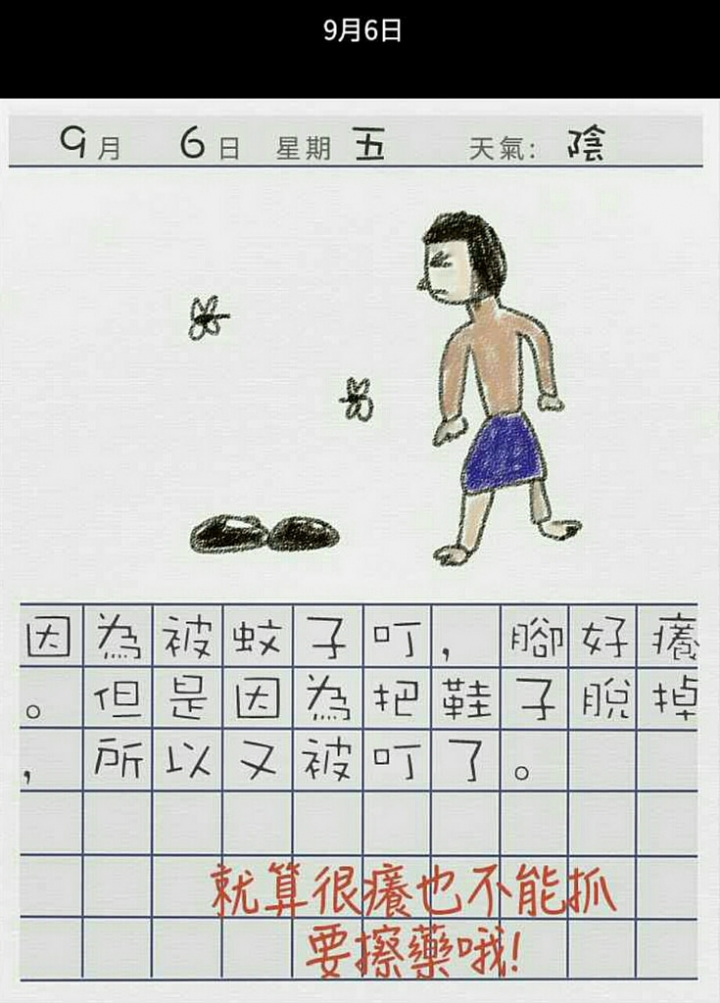 9月6日
9月 6日 星期 五 天氣: 陰
因為被蚊子叮,腳好癢
。但是因為把鞋子脫掉
,所以又被叮了。
就算很癢也不能抓
要擦藥哦!